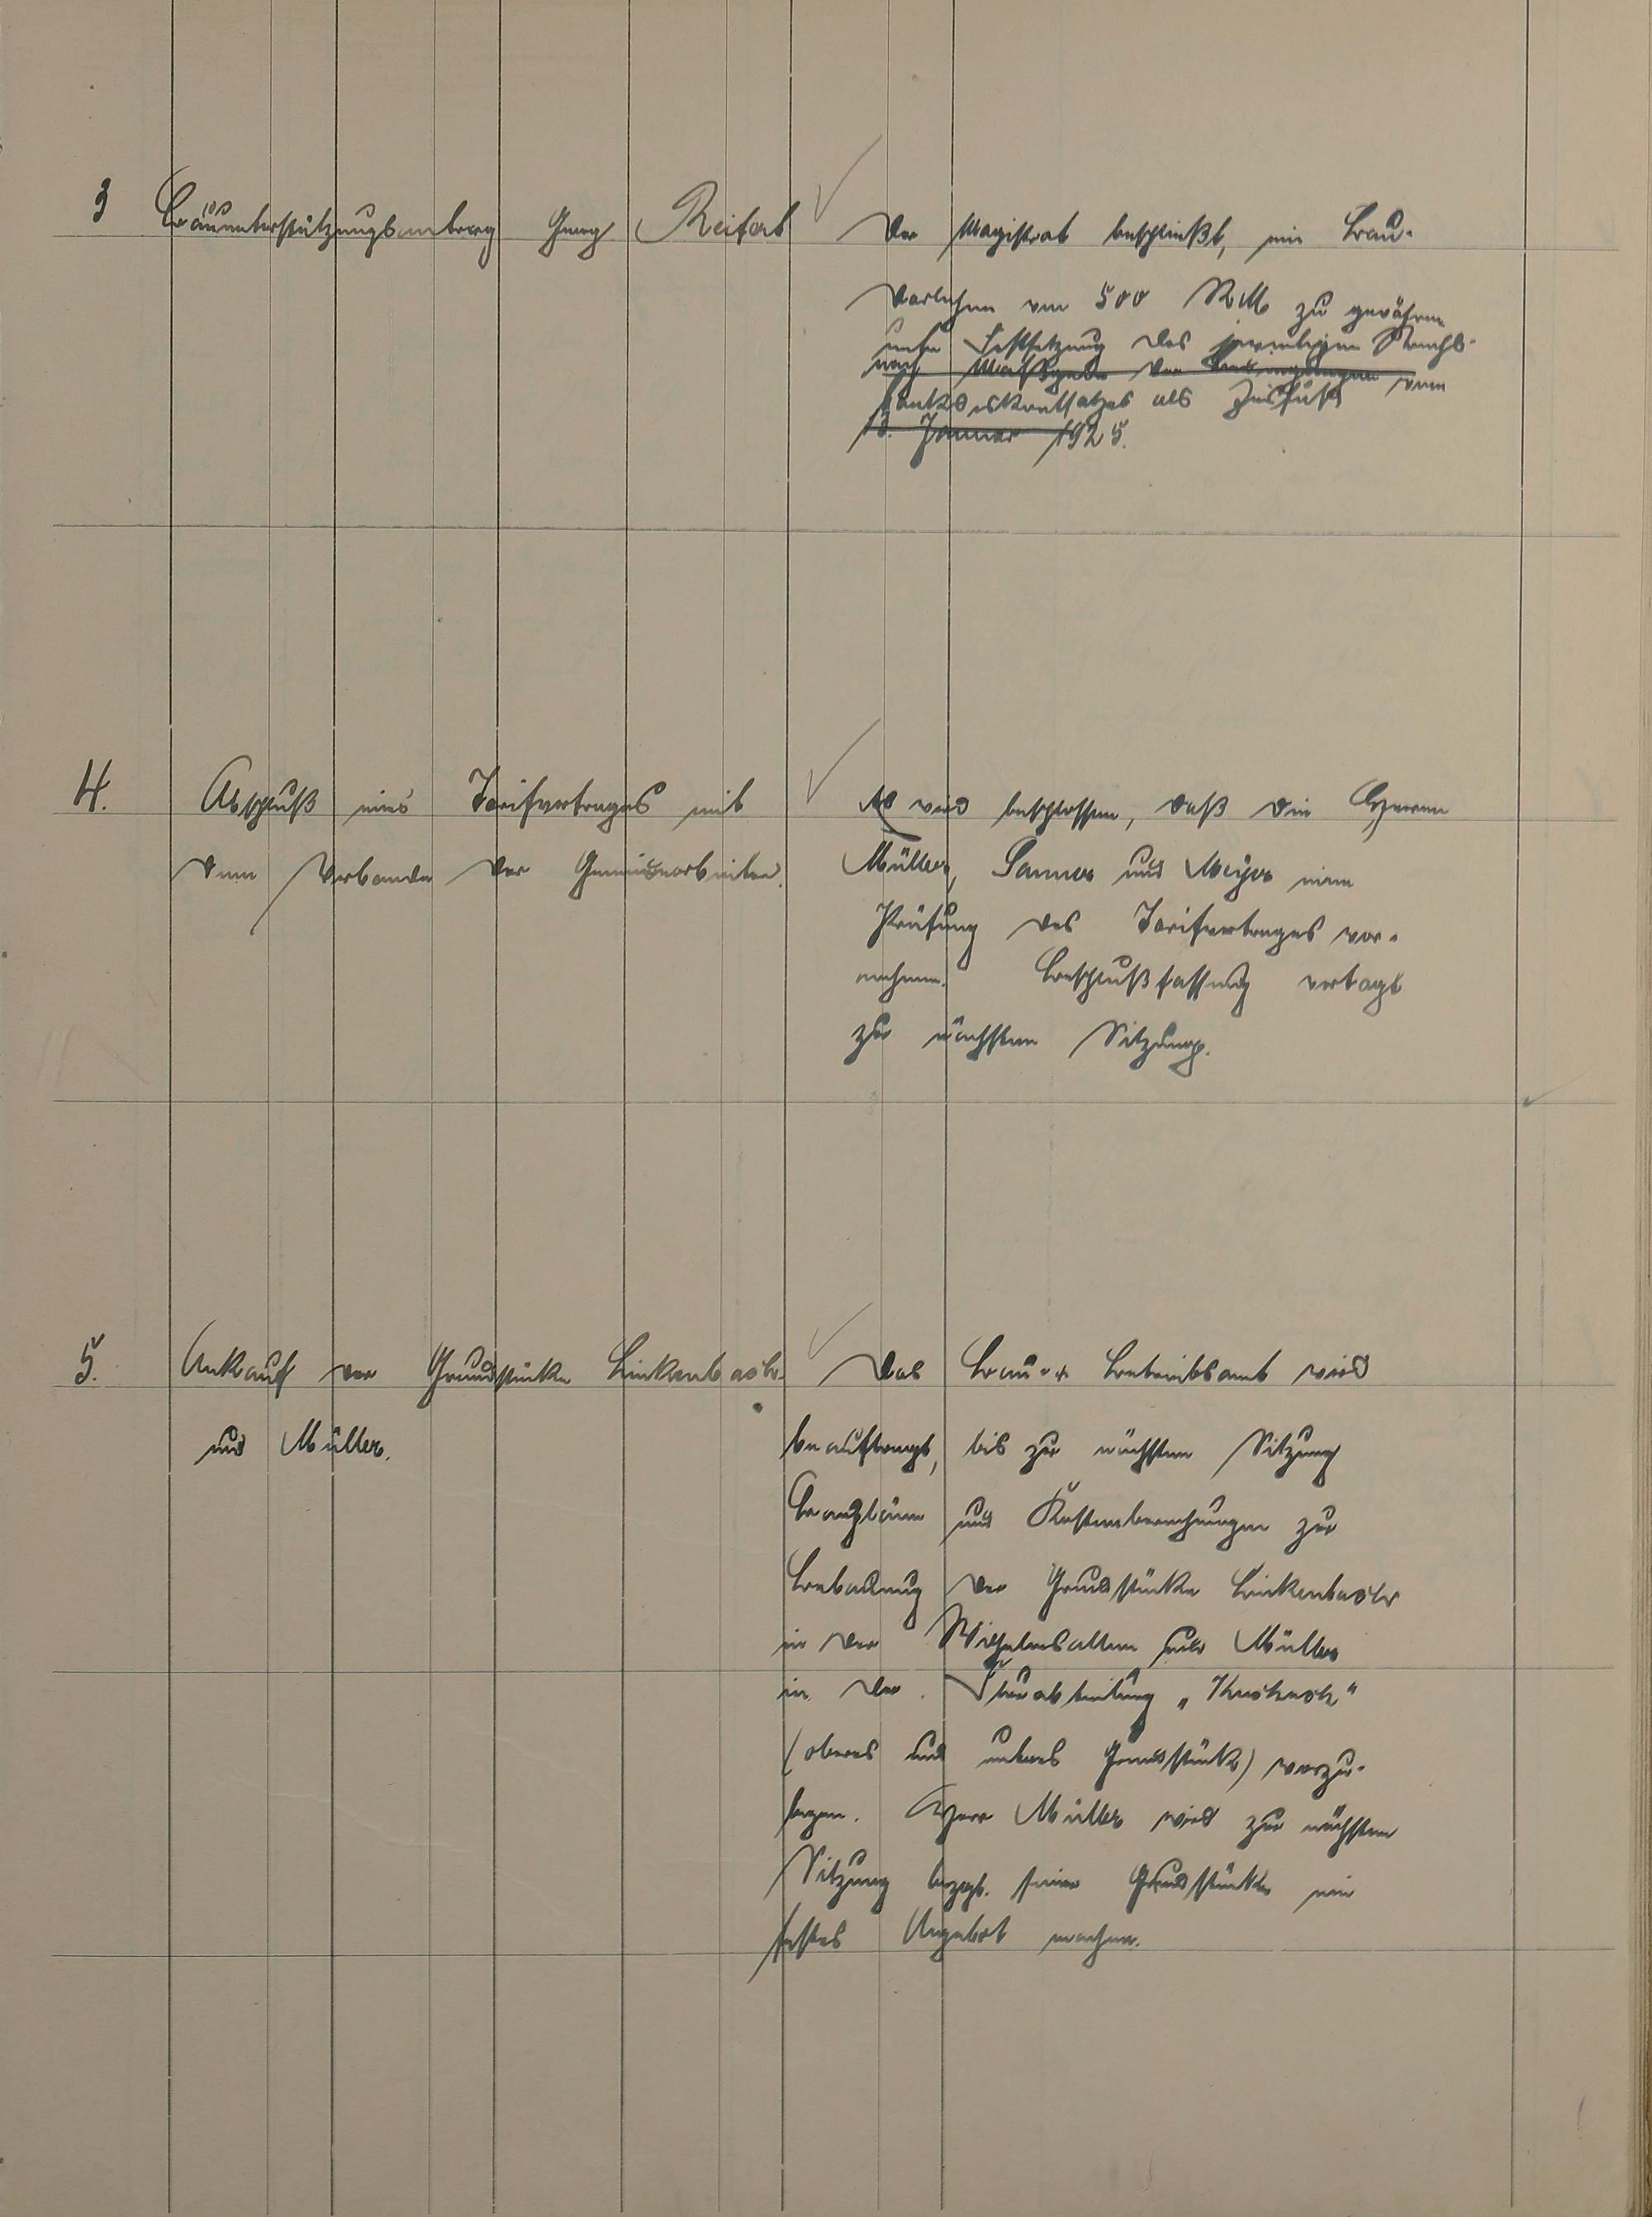 3 Bauunterstützungsantrag Georg Reifert
Der Magistrat beschließt, ein Bau-
darlehen von 500 RM zu gewähren
unter Festsetzung des jeweiligen Reichs-
nach Maßgabe der Bedingungen vom
bankdiskontsatzes als Zinsfuß
13. Januar 1925.
4. Abschluß eines Tarifvertrages mit
dem Verbande der Gemeindearbeiter.
Es wird beschlossen, daß die Herren
Müller, Sanner und Meyer eine
Prüfung des Tarifvertrages vor-
nehmen. Beschlußfassung vertagt
zur nächsten Sitzung.
5. Ankauf der Grundstücke Linkenbach
und Müller.
Das Bau- u. Betriebsamt wird
beauftragt, bis zur nächsten Sitzung
Baupläne und Kostenberechnungen zur
Bebauung der Grundstücke Linkenbach
in der Wilhelmsallee und Müller
in der Flurabteilung
(oberes und unteres Grundstück) vorzu-
legen. Herr Müller wird zur nächsten
Sitzung bezgl. seiner Grundstücke ein
festes Angebot machen.